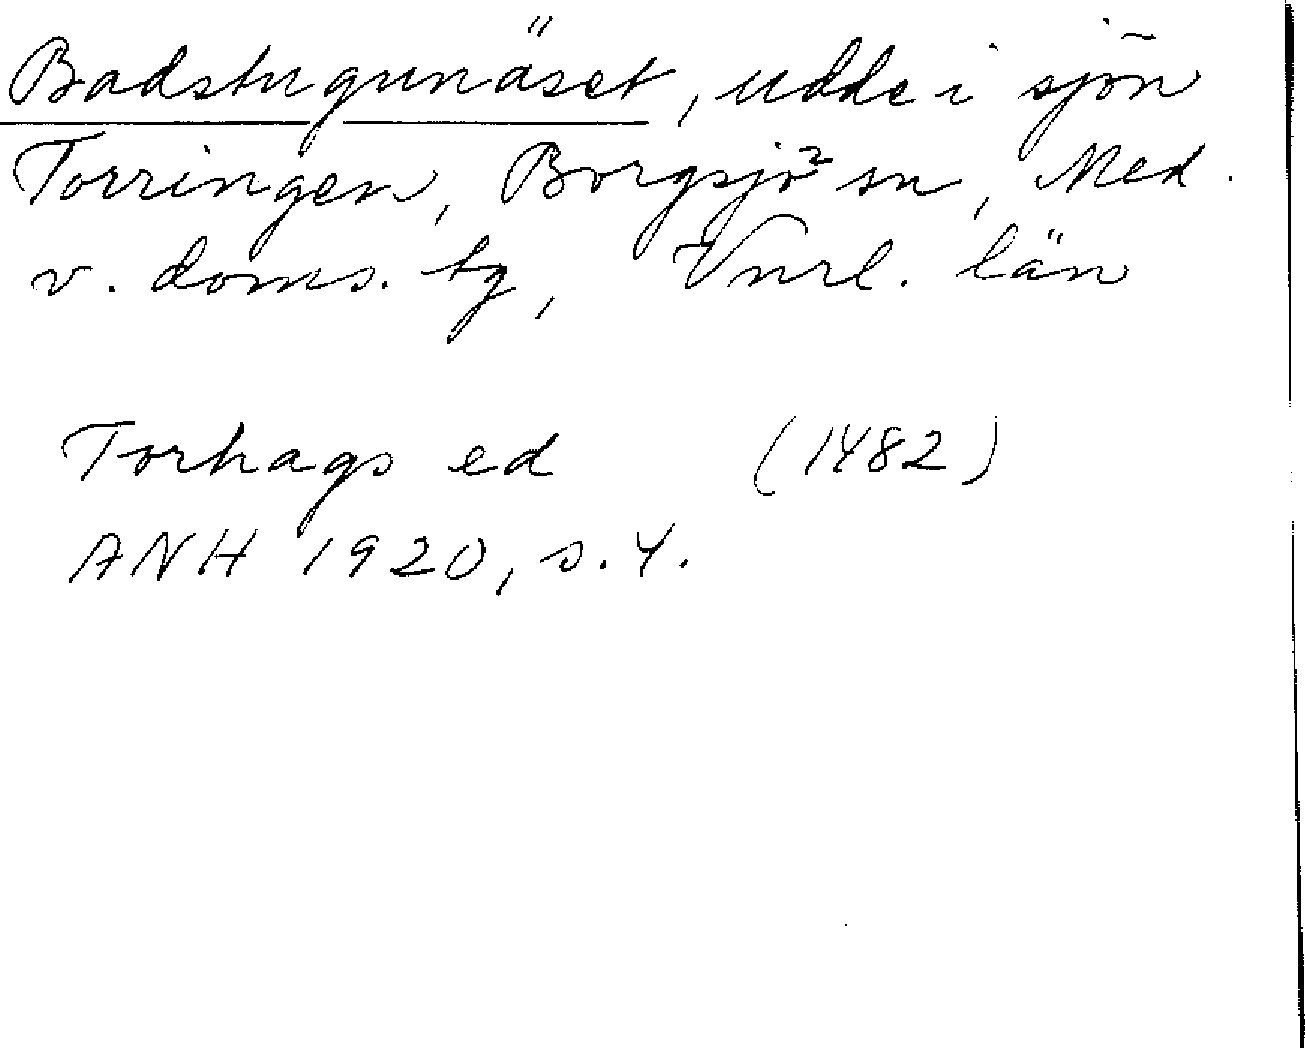 Badstugunäset, udde i sjön
Torringen, Borgsjö sn, Med.
v. doms. tg, Vnrl. län
Torhags ed (1482)
ANH 1920, s. 4.